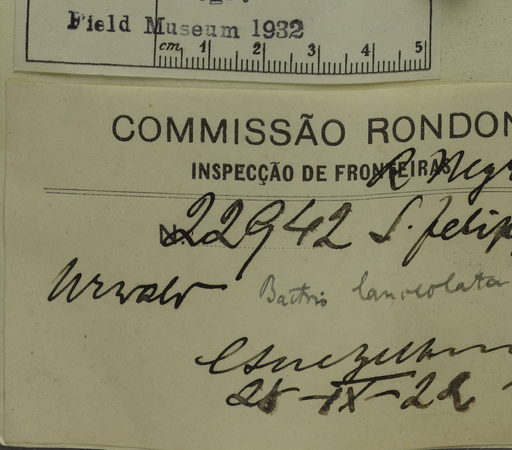 Field Museum 1932
cm 1 2 3 4 5
COMMISSÃO RONDON
INSPECÇÃO DE FRONTEIRAS
R. Negr
N. 22942 S. Felip
Urwald Bactris lanceolata
28-IX-22